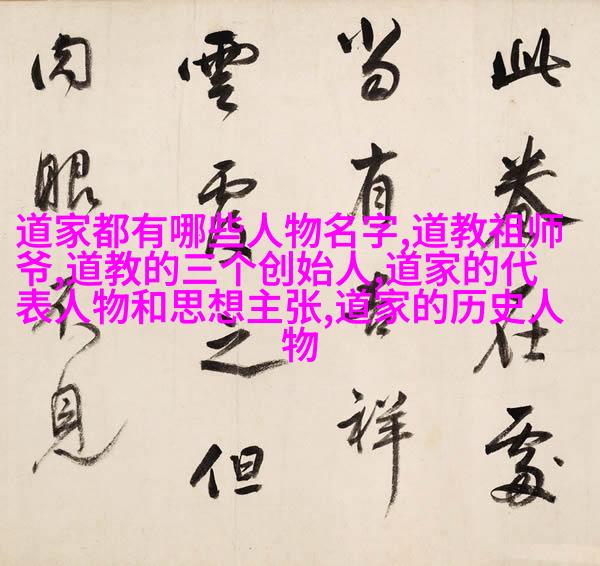 道家都有哪些人物名字,道教祖师
爷,道教的三个创始人,道家的代
表人物和思想主张,道家的历史人
物
此卷在處
當有吉祥
雲覆之但
肉眼不見